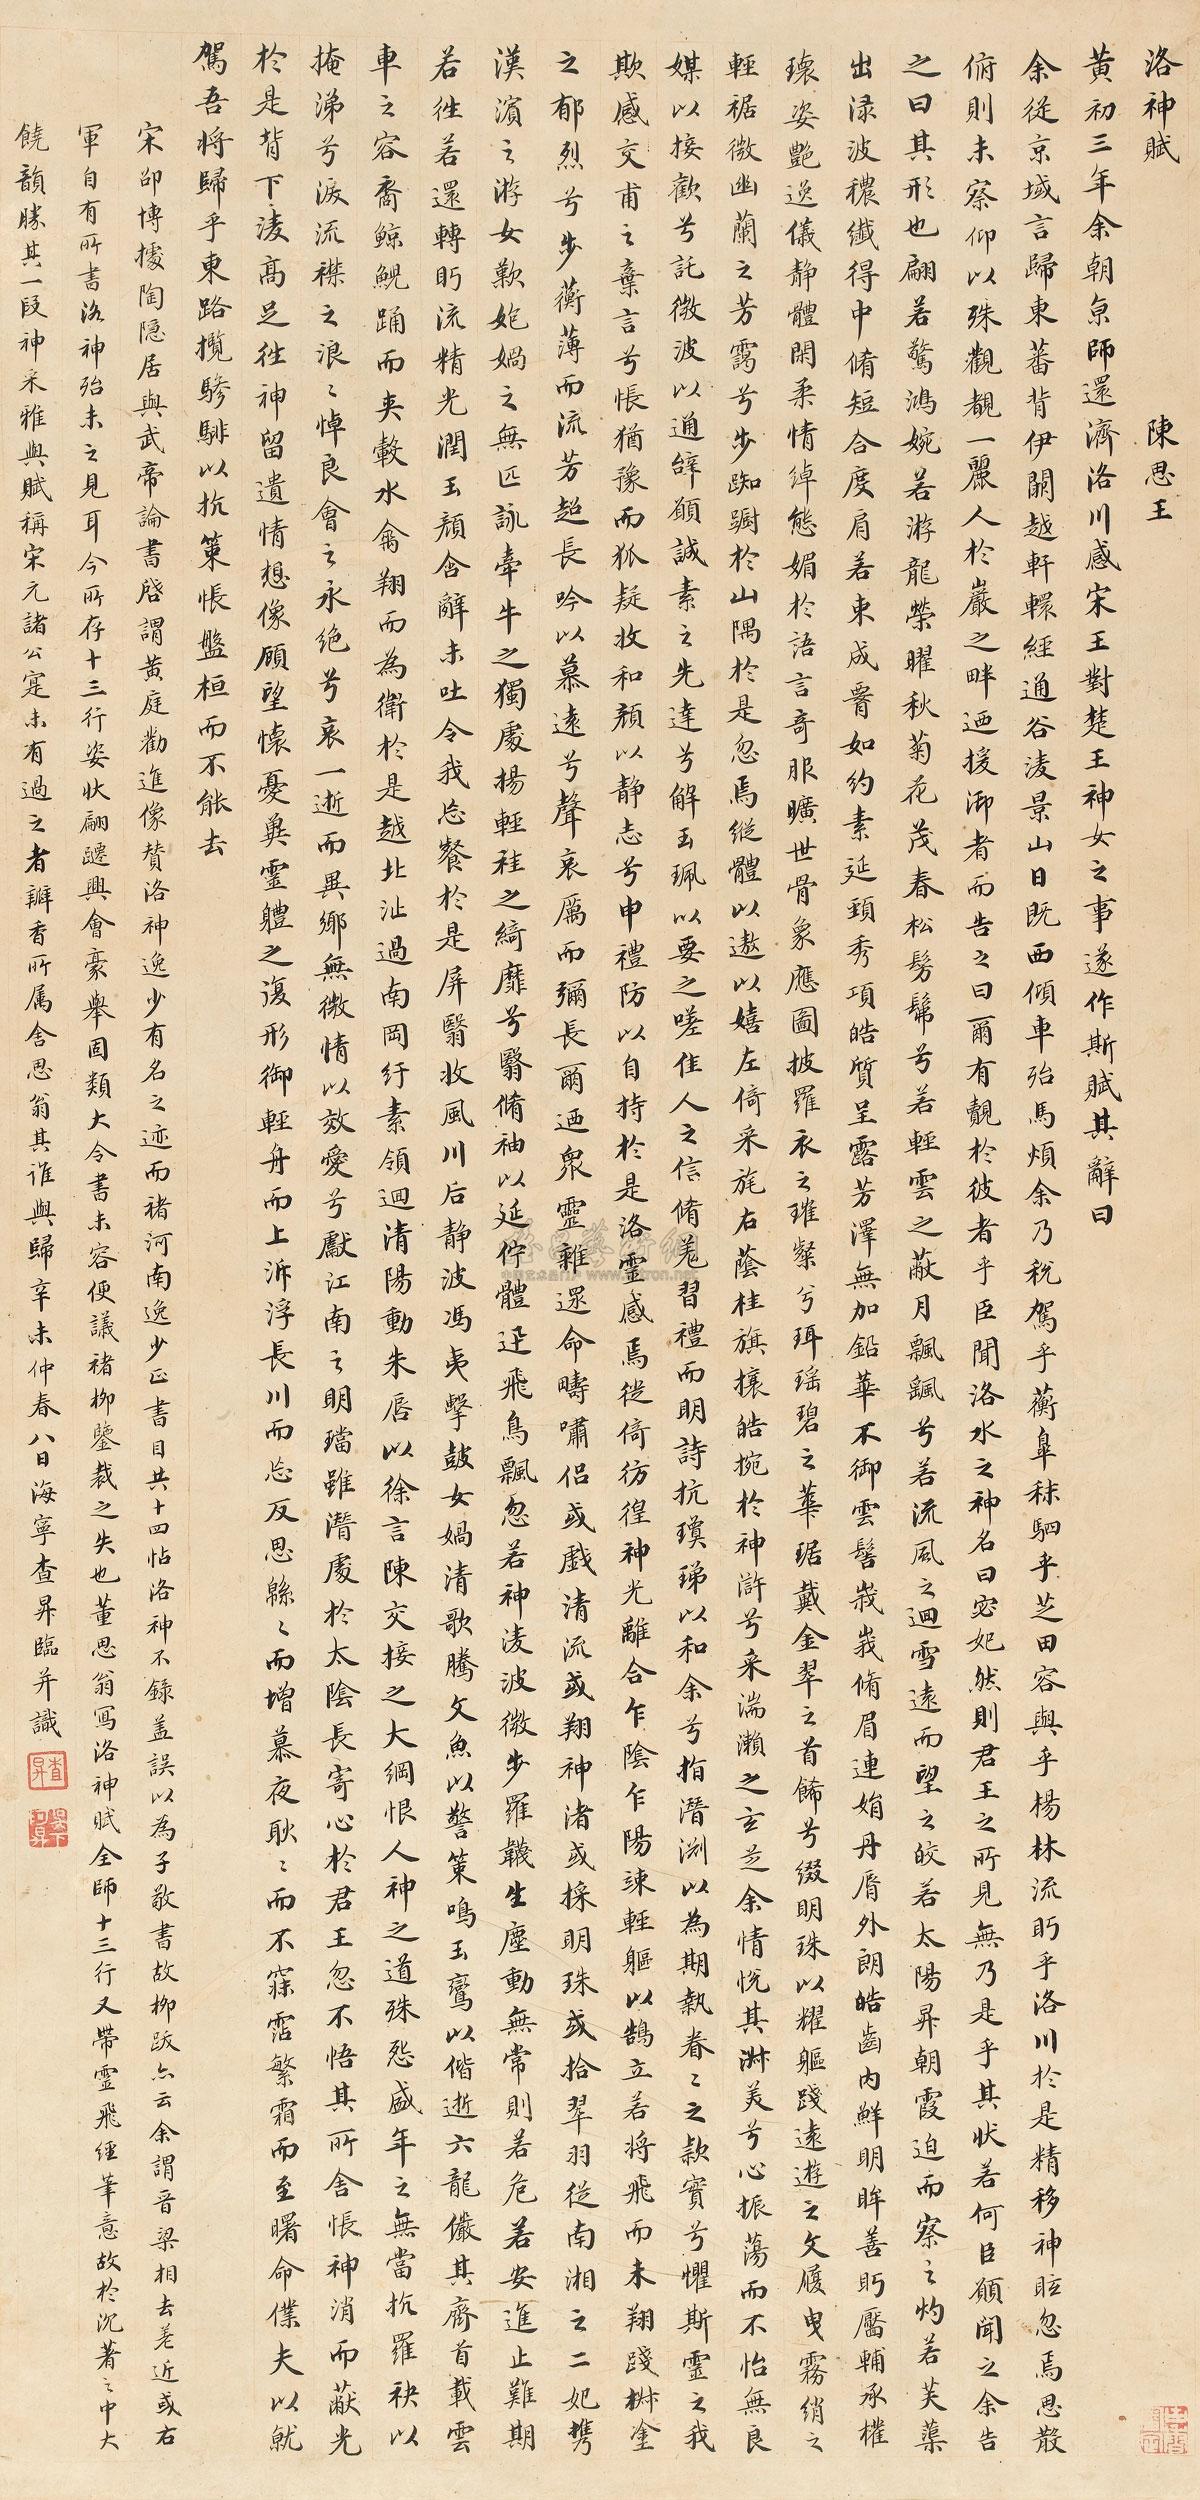 洛神賦
陳思王
黃初三年余朝京師還濟洛川感宋王對楚王神女之事遂作斯賦其辭曰
余從京域言歸東藩背伊闕越轘轅經通谷淩景山日既西傾車殆馬煩余乃稅駕乎蘅皐秣駟乎芝田容與乎楊林流眄乎洛川於是精移神眩忽焉思散
俯則未察仰以殊觀覩一麗人於巖之畔迺援御者而告之曰爾有覿於彼者乎臣聞洛水之神名曰宓妃然則君王之所見無乃是乎其狀若何臣願聞之余告
之曰其形也翩若驚鴻婉若游龍榮曜秋菊花茂春松髣髴兮若輕雲之蔽月飄颻兮若流風之迴雪遠而望之皎若太陽昇朝霞迫而察之灼若芙蕖
出淥波穠纖得中脩短合度肩若束成腰如約素延頸秀項皓質呈露芳澤無加鉛華不御雲髻峩峩脩眉連娟丹脣外朗皓齒內鮮明眸善眄靨輔承權
瓌姿艷逸儀靜體閑柔情綽態媚於語言奇服曠世骨象應圖披羅衣之璀粲兮珥瑤碧之華琚戴金翠之首飾兮綴明珠以耀軀踐遠遊之文履曳霧綃之
輕裾微幽蘭之芳靄兮步踟躕於山隅於是忽焉縱體以遨以嬉左倚采旄右蔭桂旗攘皓捥於神滸兮采湍瀨之玄芝余情悅其淋美兮心振蕩而不怡無良
媒以接歡兮託微波以通辭願誠素之先達兮解玉珮以要之嗟佳人之信脩羌習禮而明詩抗瓊珶以和余兮指潛淵以為期執眷〻之款實兮懼斯靈之我
欺感交甫之棄言兮悵猶豫而狐疑收和顏以静志兮申禮防以自持於是洛靈感焉徙倚彷徨神光離合乍陰乍陽竦輕軀以鶴立若將飛而未翔踐椒塗
之郁烈兮步蘅薄而流芳超長吟以慕遠兮聲哀厲而彌長爾迺衆靈雜遝命疇嘯侶或戲清流或翔神渚或採明珠或拾翠羽從南湘之二妃攜
漢濱之游女歎匏媧之無匹詠牽牛之獨處揚輕袿之綺靡兮翳脩袖以延佇體迅飛鳥飄忽若神淩波微步羅韈生塵動無常則若危若安進止難期
若往若還轉眄流精光潤玉顏含辭未吐令我忘餐於是屏翳收風川后静波馮夷擊鼓女媧清歌騰文魚以警策鳴玉鸞以偕逝六龍儼其齊首載雲
車之容裔鯨鯢踊而夾轂水禽翔而為衛於是越北沚過南岡紆素領迴清陽動朱唇以徐言陳交接之大綱恨人神之道殊怨盛年之無當抗羅袂以
掩涕兮淚流襟之浪〻悼良會之永絕兮哀一逝而異鄉無微情以效愛兮獻江南之明璫雖潛處於太陰長寄心於君王忽不悟其所舍悵神消而蔽光
於是背下淩高足往神留遺情想像顧望懷憂冀靈體之復形御輕舟而上泝浮長川而忘反思緜〻而增慕夜耿〻而不寐霑繁霜而至曙命僕夫以就
駕吾將歸乎東路攬騑驂以抗策悵盤桓而不能去
宋邵博據陶隱居與武帝論書啓謂黃庭勸進像贊洛神逸少有名之迹而褚河南逸少正書目共十四帖洛神不錄蓋誤以為子敬書故柳跋亦云余謂晉梁相去差近或右
軍自有所書洛神殆未之見耳今所存十三行姿狀翩躚興會豪舉固類大令書未容便議褚柳鑒裁之失也董思翁寫洛神賦全師十三行又帶靈飛經筆意故於沉著之中大
饒韻勝其一段神采雅與賦稱宋元諸公寔未有過之者瓣香所属舍思翁其誰與歸辛未仲春八日海寧查昇臨并識